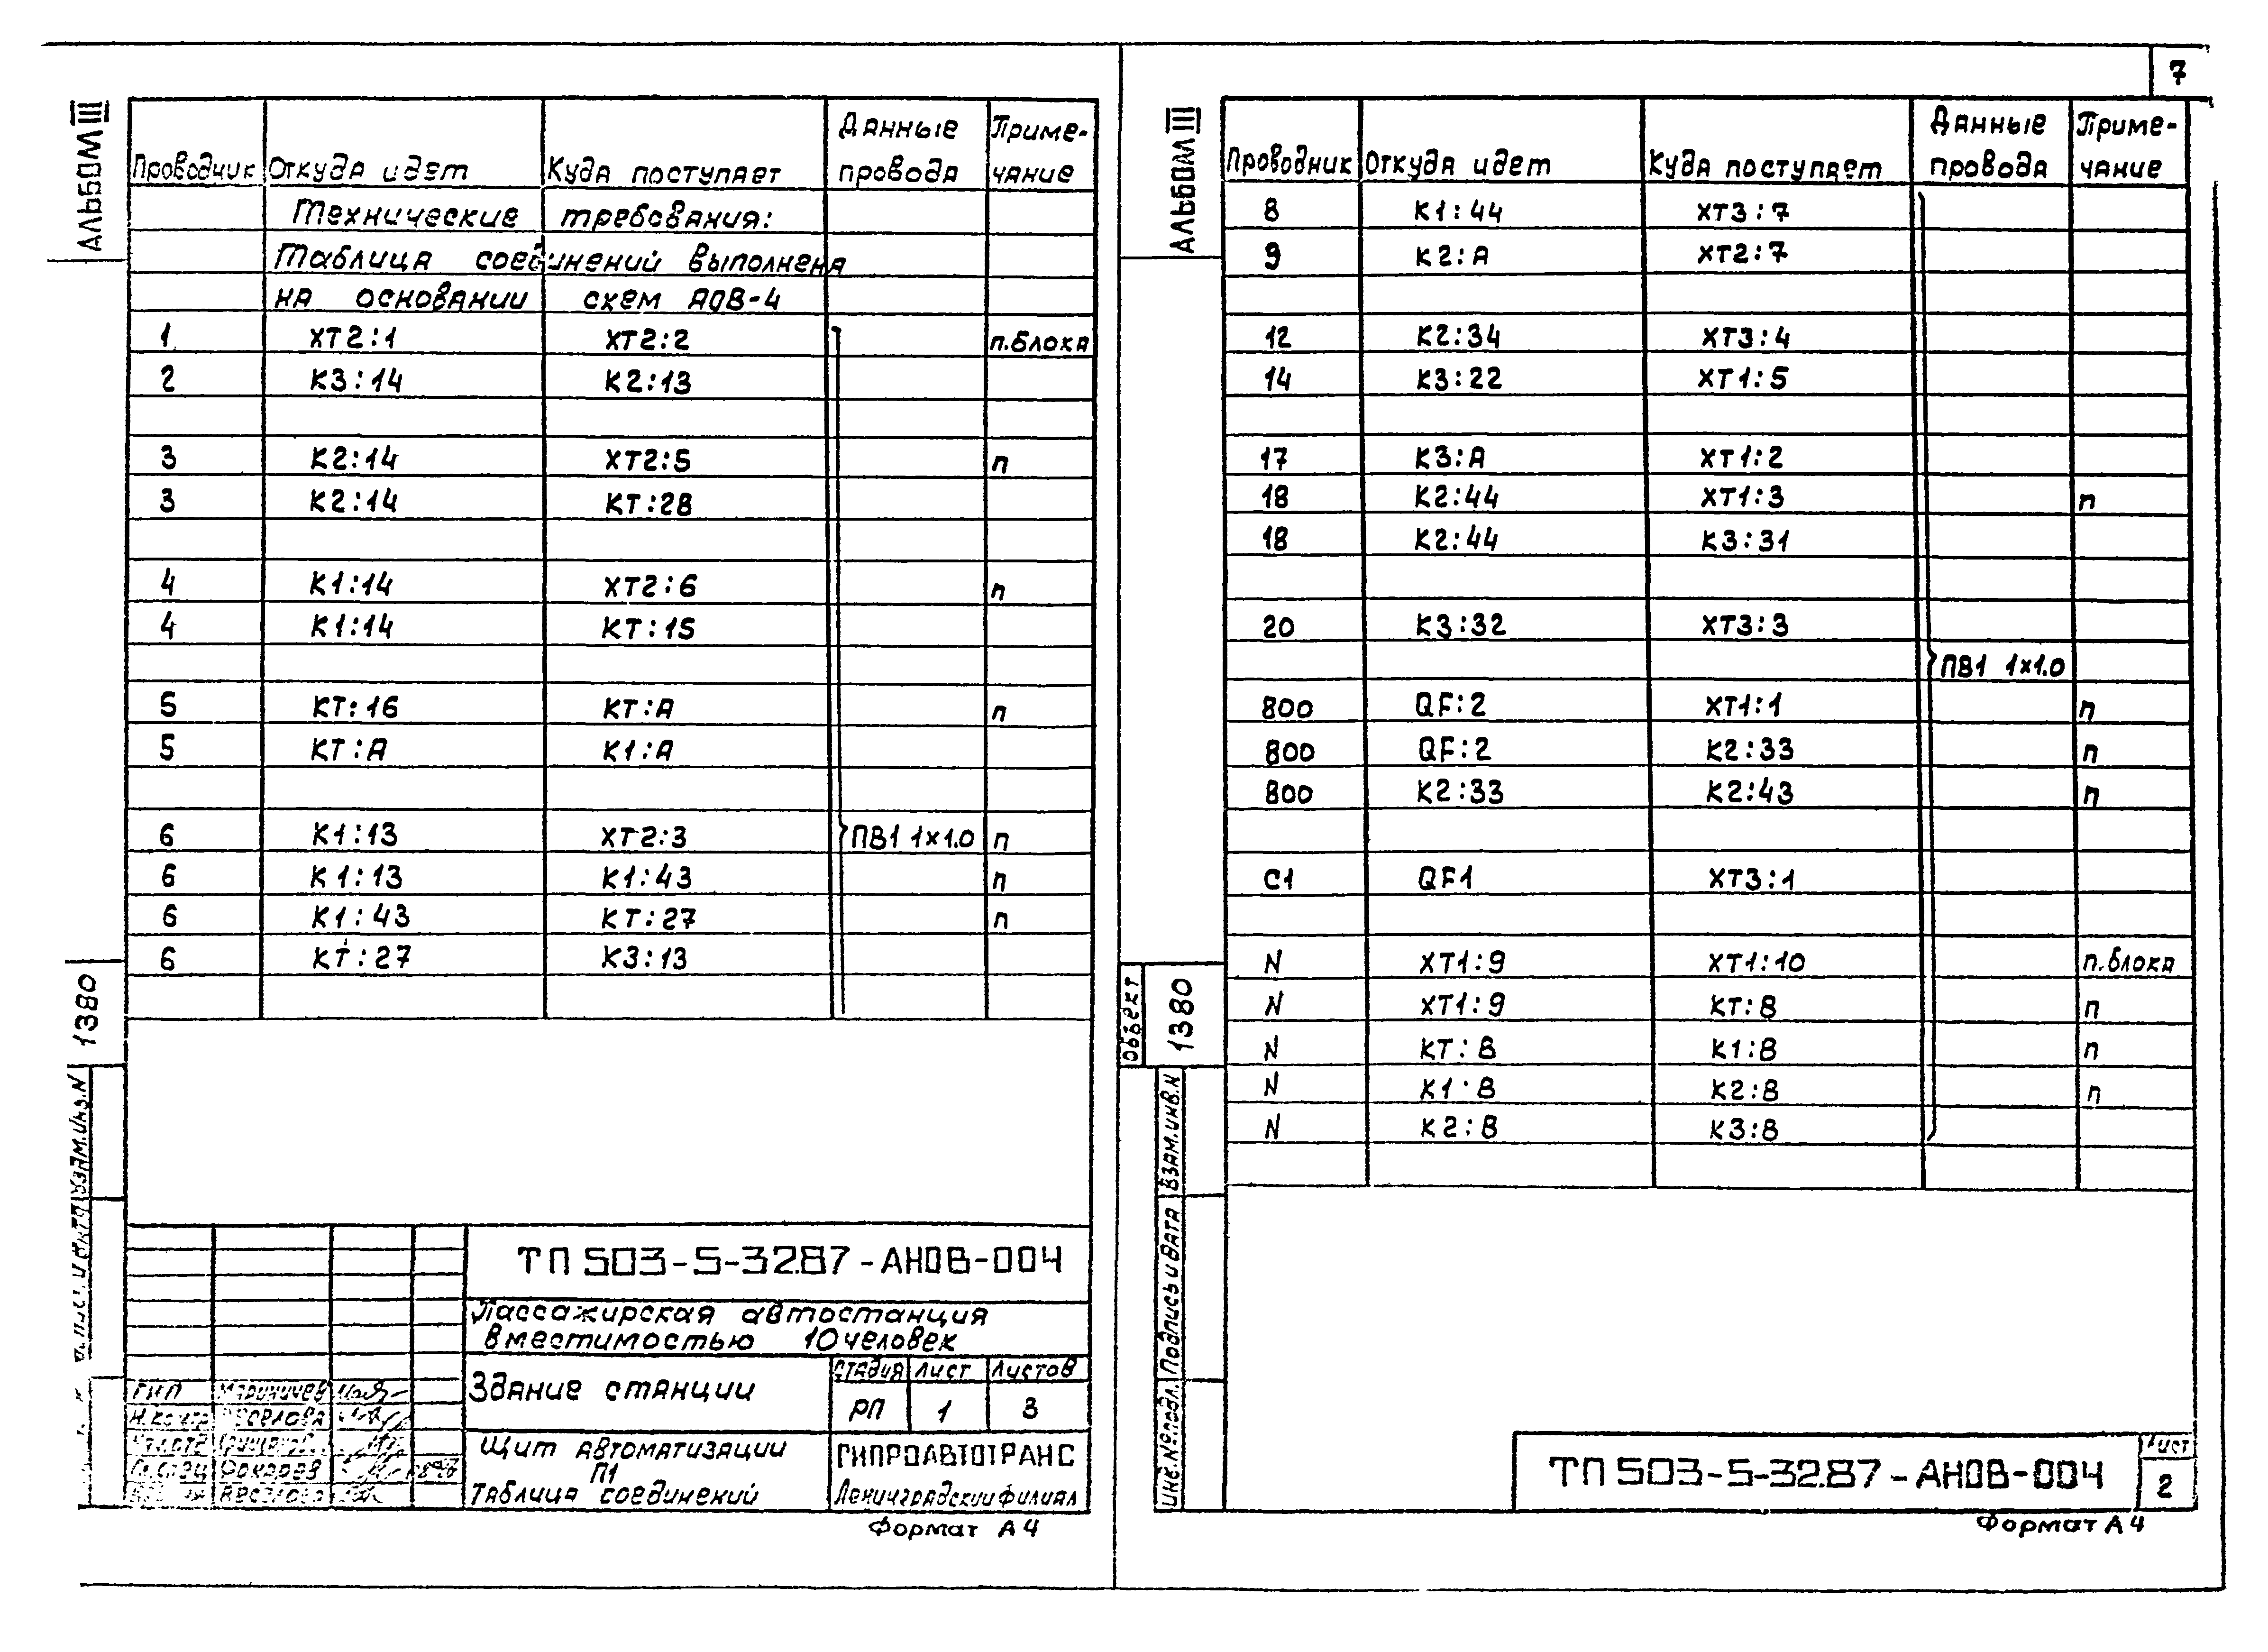 7
АЛЬБОМ III
Проводник Откуда идет Куда поступает Данные провода Приме-чание
Технические требования:
Таблица соединений выполнена
на основании схем АОВ-4
1 XT2:1 XT2:2 п.блока
2 K3:14 K2:13
3 K2:14 XT2:5 п
3 K2:14 KT:28
4 K1:14 XT2:6 п
4 K1:14 KT:15
5 KT:16 KT:A п
5 KT:A K1:A
6 K1:13 XT2:3 ПВ1 1x1.0 п
6 K1:13 K1:43 п
6 K1:43 KT:27 п
6 KT:27 K3:13
1380
Взам.инв.N
ТП 503-5-32.87-АНОВ-004
Пассажирская автостанция
вместимостью 10 человек
Здание станции
Стадия Лист Листов
РП 1 3
ГИП Мариничев
Н.контр Веселова
Щит автоматизации
П1
Таблица соединений
ГИПРОАВТОТРАНС
Ленинградский филиал
Формат А4
АЛЬБОМ III
Проводник Откуда идет Куда поступает Данные провода Приме-чание
8 K1:44 XT3:7
9 K2:A XT2:7
12 K2:34 XT3:4
14 K3:22 XT1:5
17 K3:A XT1:2
18 K2:44 XT1:3 п
18 K2:44 K3:31
20 K3:32 XT3:3
ПВ1 1x1.0
800 QF:2 XT1:1 п
800 QF:2 K2:33 п
800 K2:33 K2:43 п
C1 QF1 XT3:1
N XT1:9 XT1:10 п.блока
N XT1:9 KT:B п
N KT:B K1:B п
N K1:B K2:B п
N K2:B K3:B
Объект
1380
Взам.инв.N
Подпись и дата
Инв.№подл.
ТП 503-5-32.87-АНОВ-004
Лист
2
Формат А4